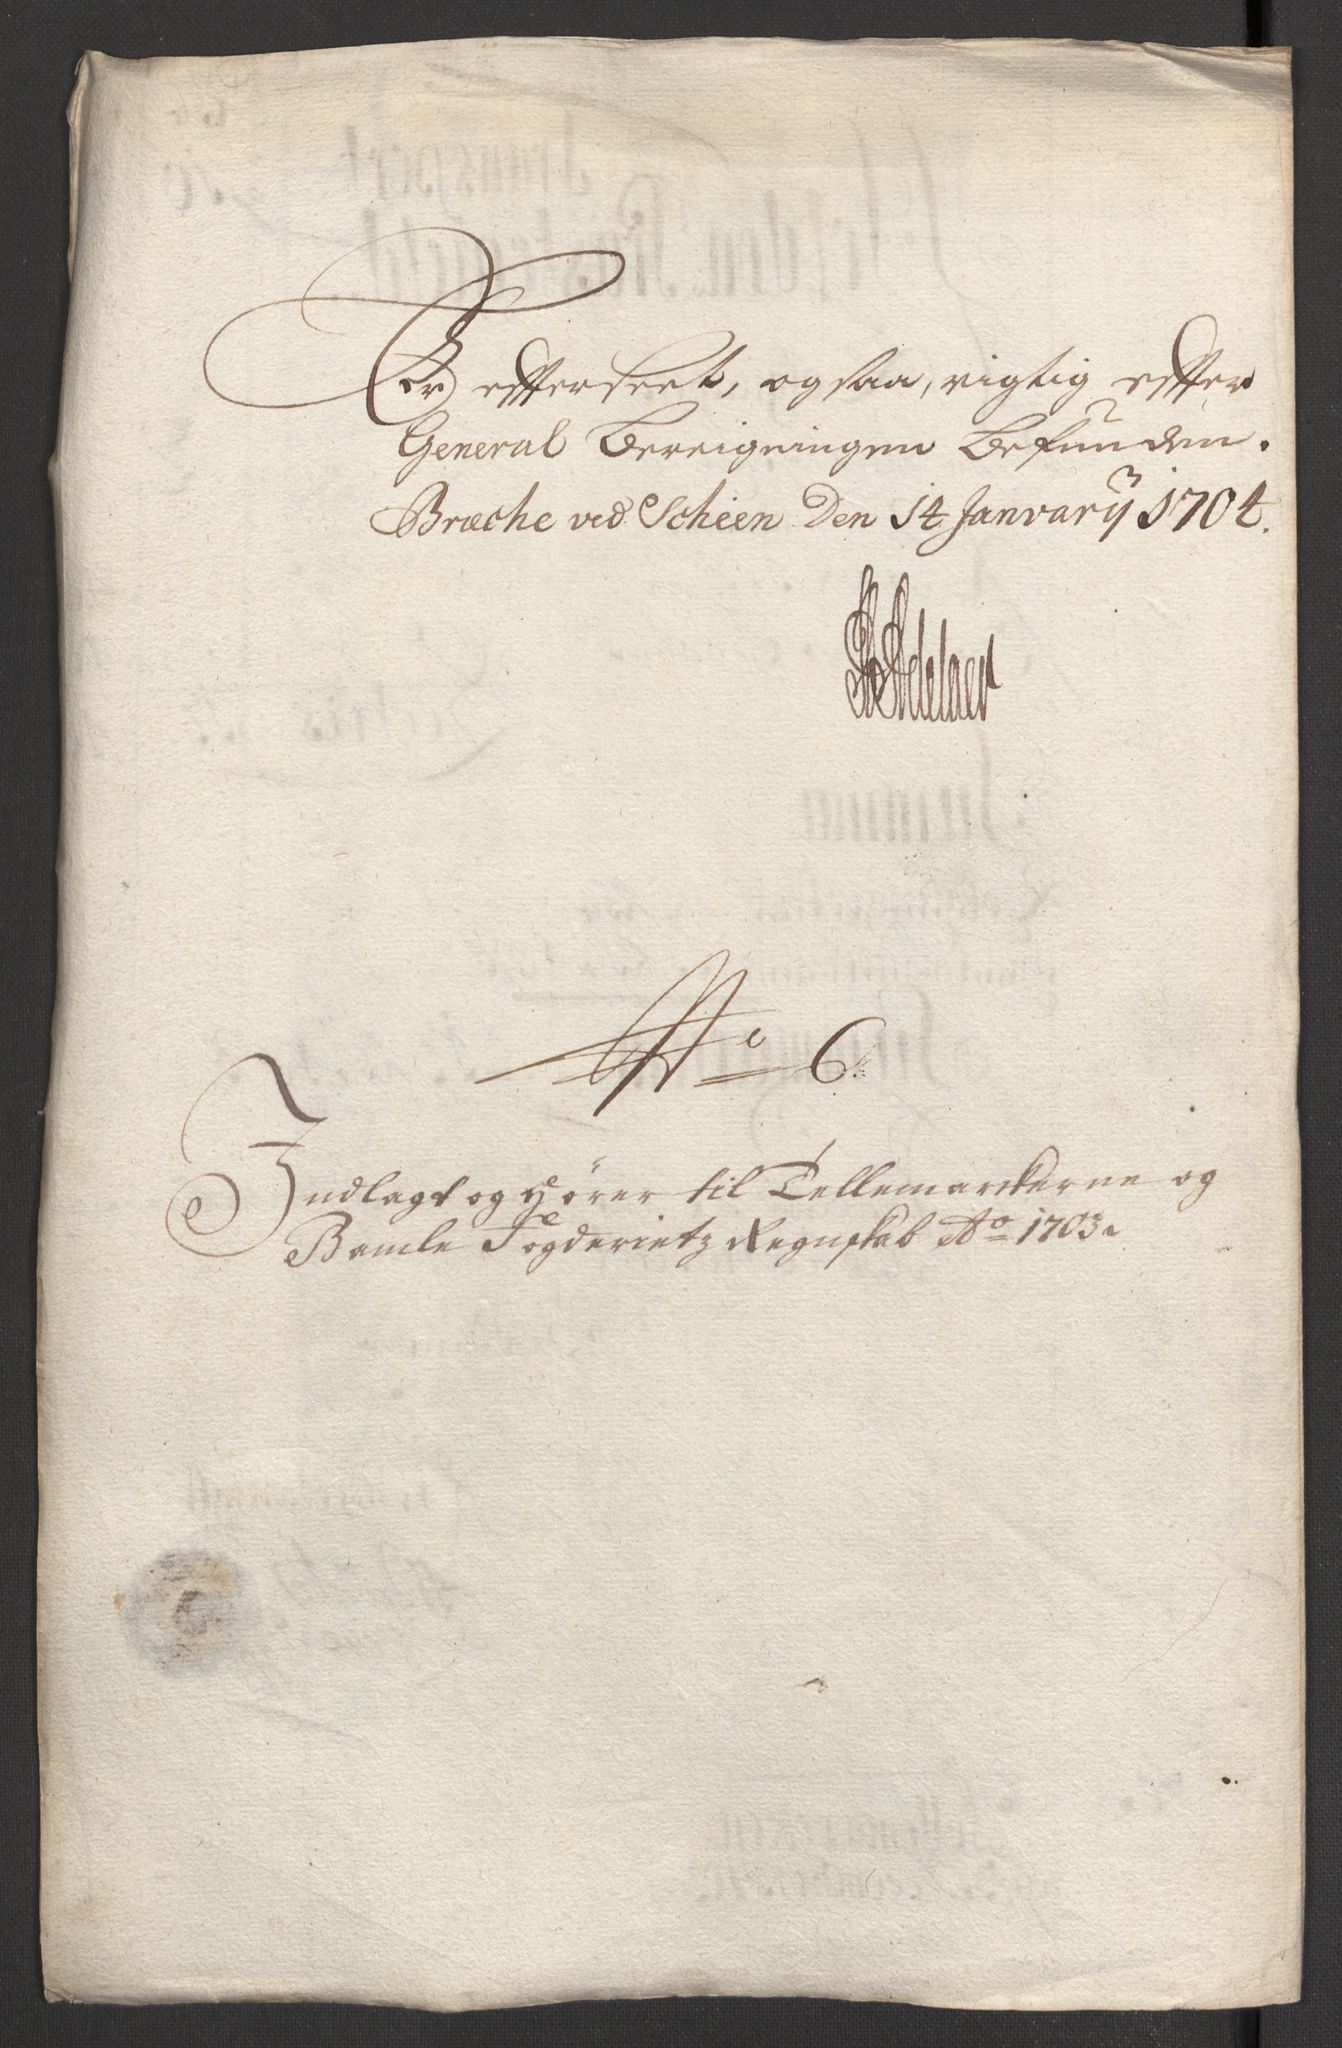 Er effterseet, og saa, rigtig effter
General Bereigningen Befunden.
Bræche ved Scheen Den 14 Januarÿ 1704.
Adelaer
No 6.
Indlagt og Hører til Tellemarckerne og
Bamle Fogderietz Regnskab Ao 1703.